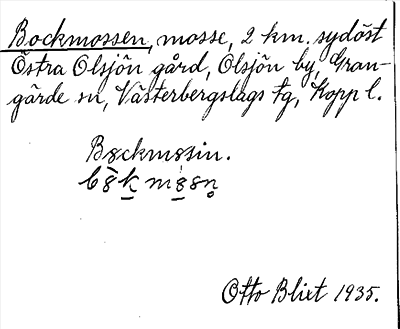 Bockmossen, mosse, 2 km. sydöst
Östra Olsjön gård, Olsjön by, Gran-
gärde sn, Västerbergslags tg, Kopp l.
Bockmosin.
Otto Blixt 1935.